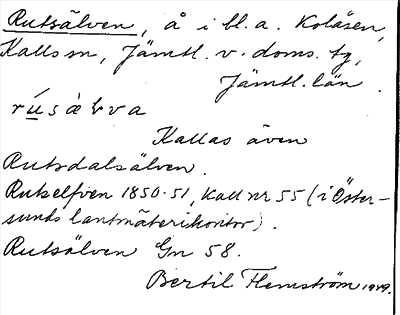 Rutsälven, å i bl.a. Kolåsen,
Kalls sn, Jämtl. v. doms. tg,
Jämtl. län.
rúsàlva
Kallas även
Rutsdalsälven.
Rutselfven 1850-51, Kall nr 55 (i Öster-
sunds lantmäterikontor).
Rutsälven Gn 58.
Bertil Flemström 1949.